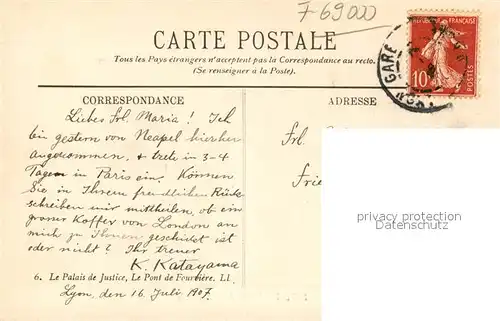 F69000
CARTE POSTALE
Tous les Pays étrangers n'acceptent pas la Correspondance au recto.
(Se renseigner à la Poste).
RÉPUBLIQUE FRANÇAISE
10
POSTES
GARE
CORRESPONDANCE
ADRESSE
Liebes Frl. Maria! Ich
bin gestern von Neapel hierher
angekommen, & trete in 3-4
Tagen in Paris ein. Können
Sie in Ihrem freundlichen Rück-
schreiben mir mittheilen, ob ein
grosser Koffer von London an
mich zu Ihnen geschickt ist
oder nicht? Ihr treuer
K. Katayama
Frl.
Frie
privacy protection
Datenschutz
6. Le Palais de Justice, Le Pont de Fourvière. LL
Lyon, den 16. Juli 1907.